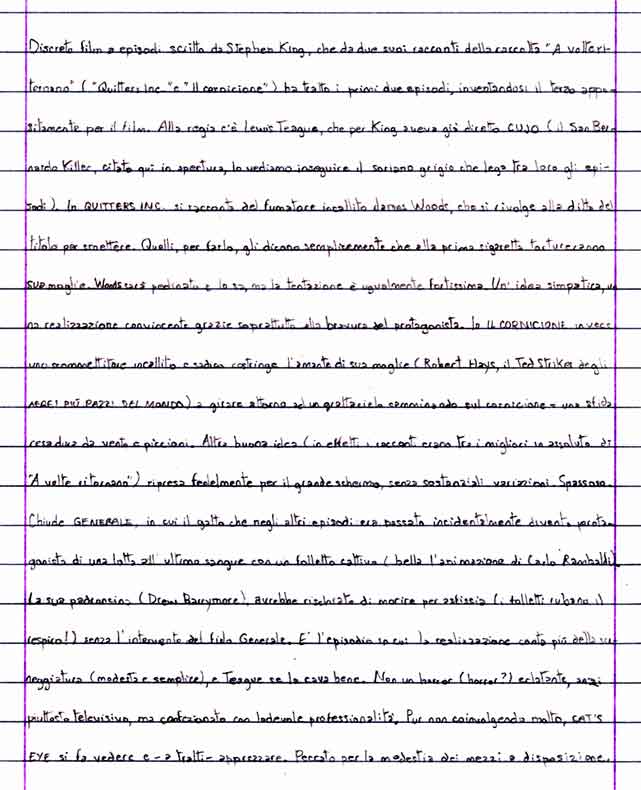 Discreto film a episodi scritto da Stephen King, che da due suoi racconti della raccolta "A volte ri-
tornano" ("Quitters Inc." e "Il cornicione") ha tratto i primi due episodi, inventandosi il terzo appo-
sitamente per il film. Alla regia c'è Lewis Teague, che per King aveva già diretto CUJO (il San Ber-
nardo Killer, citato qui in apertura, lo vediamo inseguire il soriano grigio che lega tra loro gli epi-
sodi). In QUITTERS INC. si racconta del fumatore incallito James Woods, che si rivolge alla ditta del
titolo per smettere. Quelli, per farlo, gli dicono semplicemente che alla prima sigaretta tortureranno
sua moglie. Woods sarà pedinato e lo sa, ma la tentazione è ugualmente fortissima. Un'idea simpatica, u
na realizzazione convincente grazie soprattutto alla bravura del protagonista. In IL CORNICIONE invece
uno scommettitore incallito e sadico costringe l'amante di sua moglie (Robert Hays, il Ted Striker degli
AEREI PIÙ PAZZI DEL MONDO) a girare attorno ad un grattacielo camminando sul cornicione: una sfida
resa dura da vento e piccioni. Altra buona idea (in effetti i racconti erano tra i migliori in assoluto di
"A volte ritornano") ripresa fedelmente per il grande schermo, senza sostanziali variazioni. Spassoso.
Chiude GENERALE, in cui il gatto che negli altri episodi era passato incidentalmente diventa prota-
gonista di una lotta all'ultimo sangue con un folletto cattivo (bella l'animazione di Carlo Rambaldi).
La sua padroncina (Drew Barrymore), avrebbe rischiato di morire per asfissia (i folletti rubano il
respiro!) senza l'intervento del fido Generale. E' l'episodio in cui la realizzazione conta più della sce
neggiatura (modesta e semplice), e Teague se la cava bene. Non un horror (horror?) eclatante, anzi
piuttosto televisivo, ma confezionato con lodevole professionalità. Pur non coinvolgendo molto, CAT'S
EYE si fa vedere e -a tratti- apprezzare. Peccato per la modestia dei mezzi a disposizione.